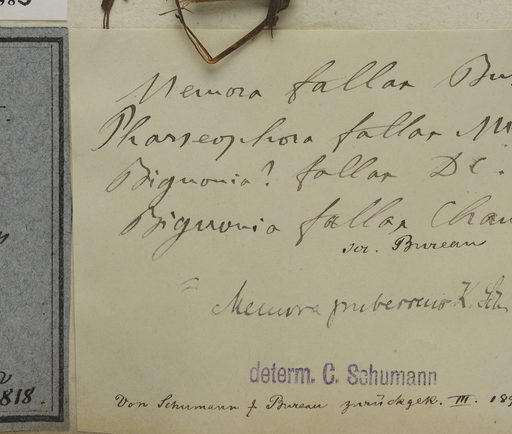 Memora fallax Bu
Pharseophora fallax M
Bignonia? fallax DC.
Bignonia fallax Cham
scr. Bureau
Memora puberrens K. Sch.
determ. C. Schumann
Von Schumann & Bureau zurückgek. III. 189
818.